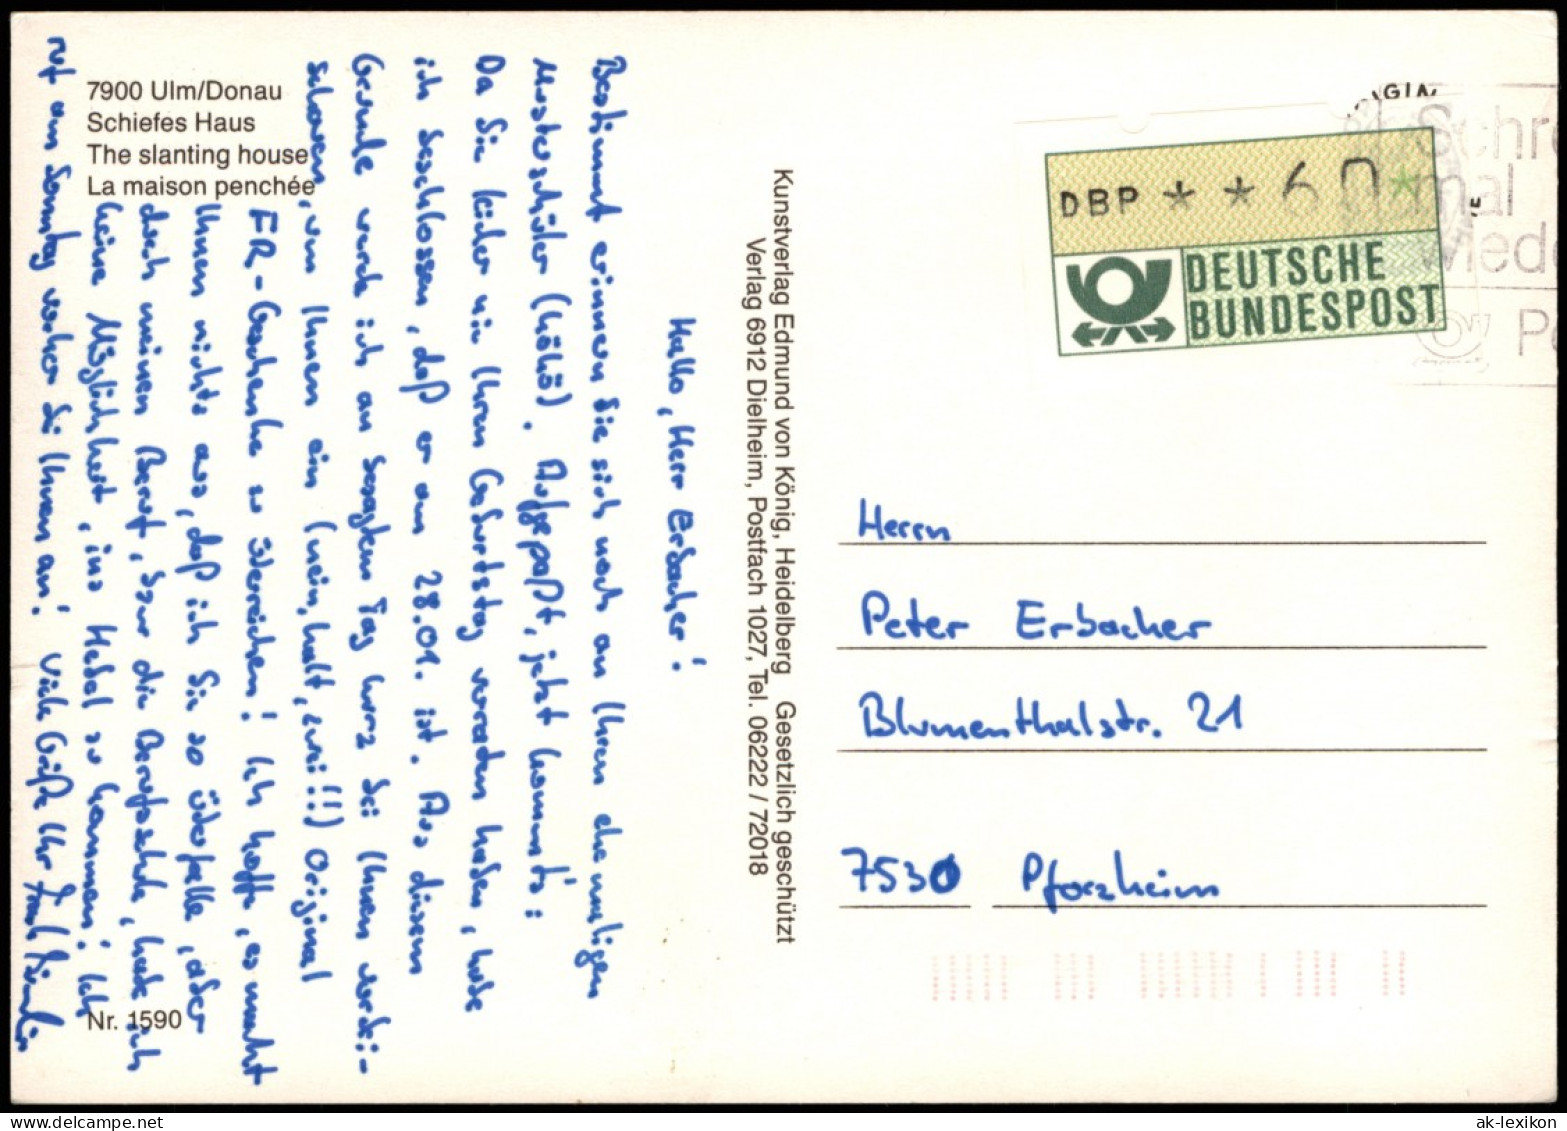 7900 Ulm/Donau
Schiefes Haus
The slanting house
La maison penchée
Hallo, Herr Erbacher!
Bestimmt erinnern Sie sich noch an Ihren ehemaligen
Musterschüler (höhö). Aufgepaßt, jetzt kommt's:
Da Sie leider nie Ihren Geburtstag verraten haben, habe
ich beschlossen, daß er am 28.01. ist. Aus diesem
Grunde werde ich an besagtem Tag kurz bei Ihnen vorbei-
schauen, um Ihnen ein (nein, halt, zwei!!) Original
FR-Geschenke zu überreichen! Ich hoffe, es macht
Ihnen nichts aus, daß ich Sie so überfalle, aber
durch meinen Beruf, bzw die Berufsschule, habe ich
keine Möglichkeit, ins Hebel zu kommen! Ich
ruf am Sonntag vorher bei Ihnen an! Viele Grüße Ihr
Nr. 1590
Kunstverlag Edmund von König, Heidelberg Gesetzlich geschützt
Verlag 6912 Dielheim, Postfach 1027, Tel. 06222 / 72018
DBP * * 60 *
DEUTSCHE
BUNDESPOST
Schre
mal
wiede
Po
Herrn
Peter Erbacher
Blumenthalstr. 21
7530 Pforzheim
ak-lexikon